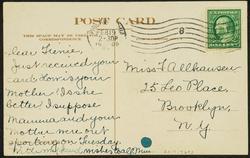 POST CARD
THIS SPACE MAY BE USED FOR CORRESPONDENCE
FEB 19
2-30P
8
Dear Genie,
Just received your
card. How is your
Mother? Is she
better I suppose
Mamma and your
Mother were out
sporting on Tuesday.
With my
Miss T. Allhausen
25 Leo Place,
Brooklyn,
N.Y.